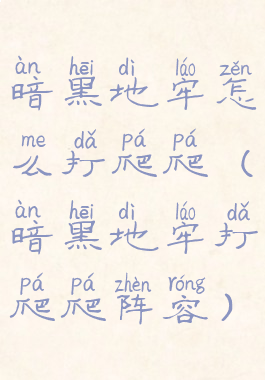 àn hēi dì láo zěn
暗黑地牢怎
me dǎ pá pá
么打爬爬（
àn hēi dì láo dǎ
暗黑地牢打
pá pá zhèn róng
爬爬阵容）